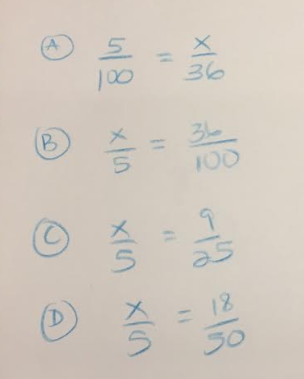 A 5/100 = x/36
B x/5 = 36/100
C x/5 = 9/25
D x/5 = 18/50